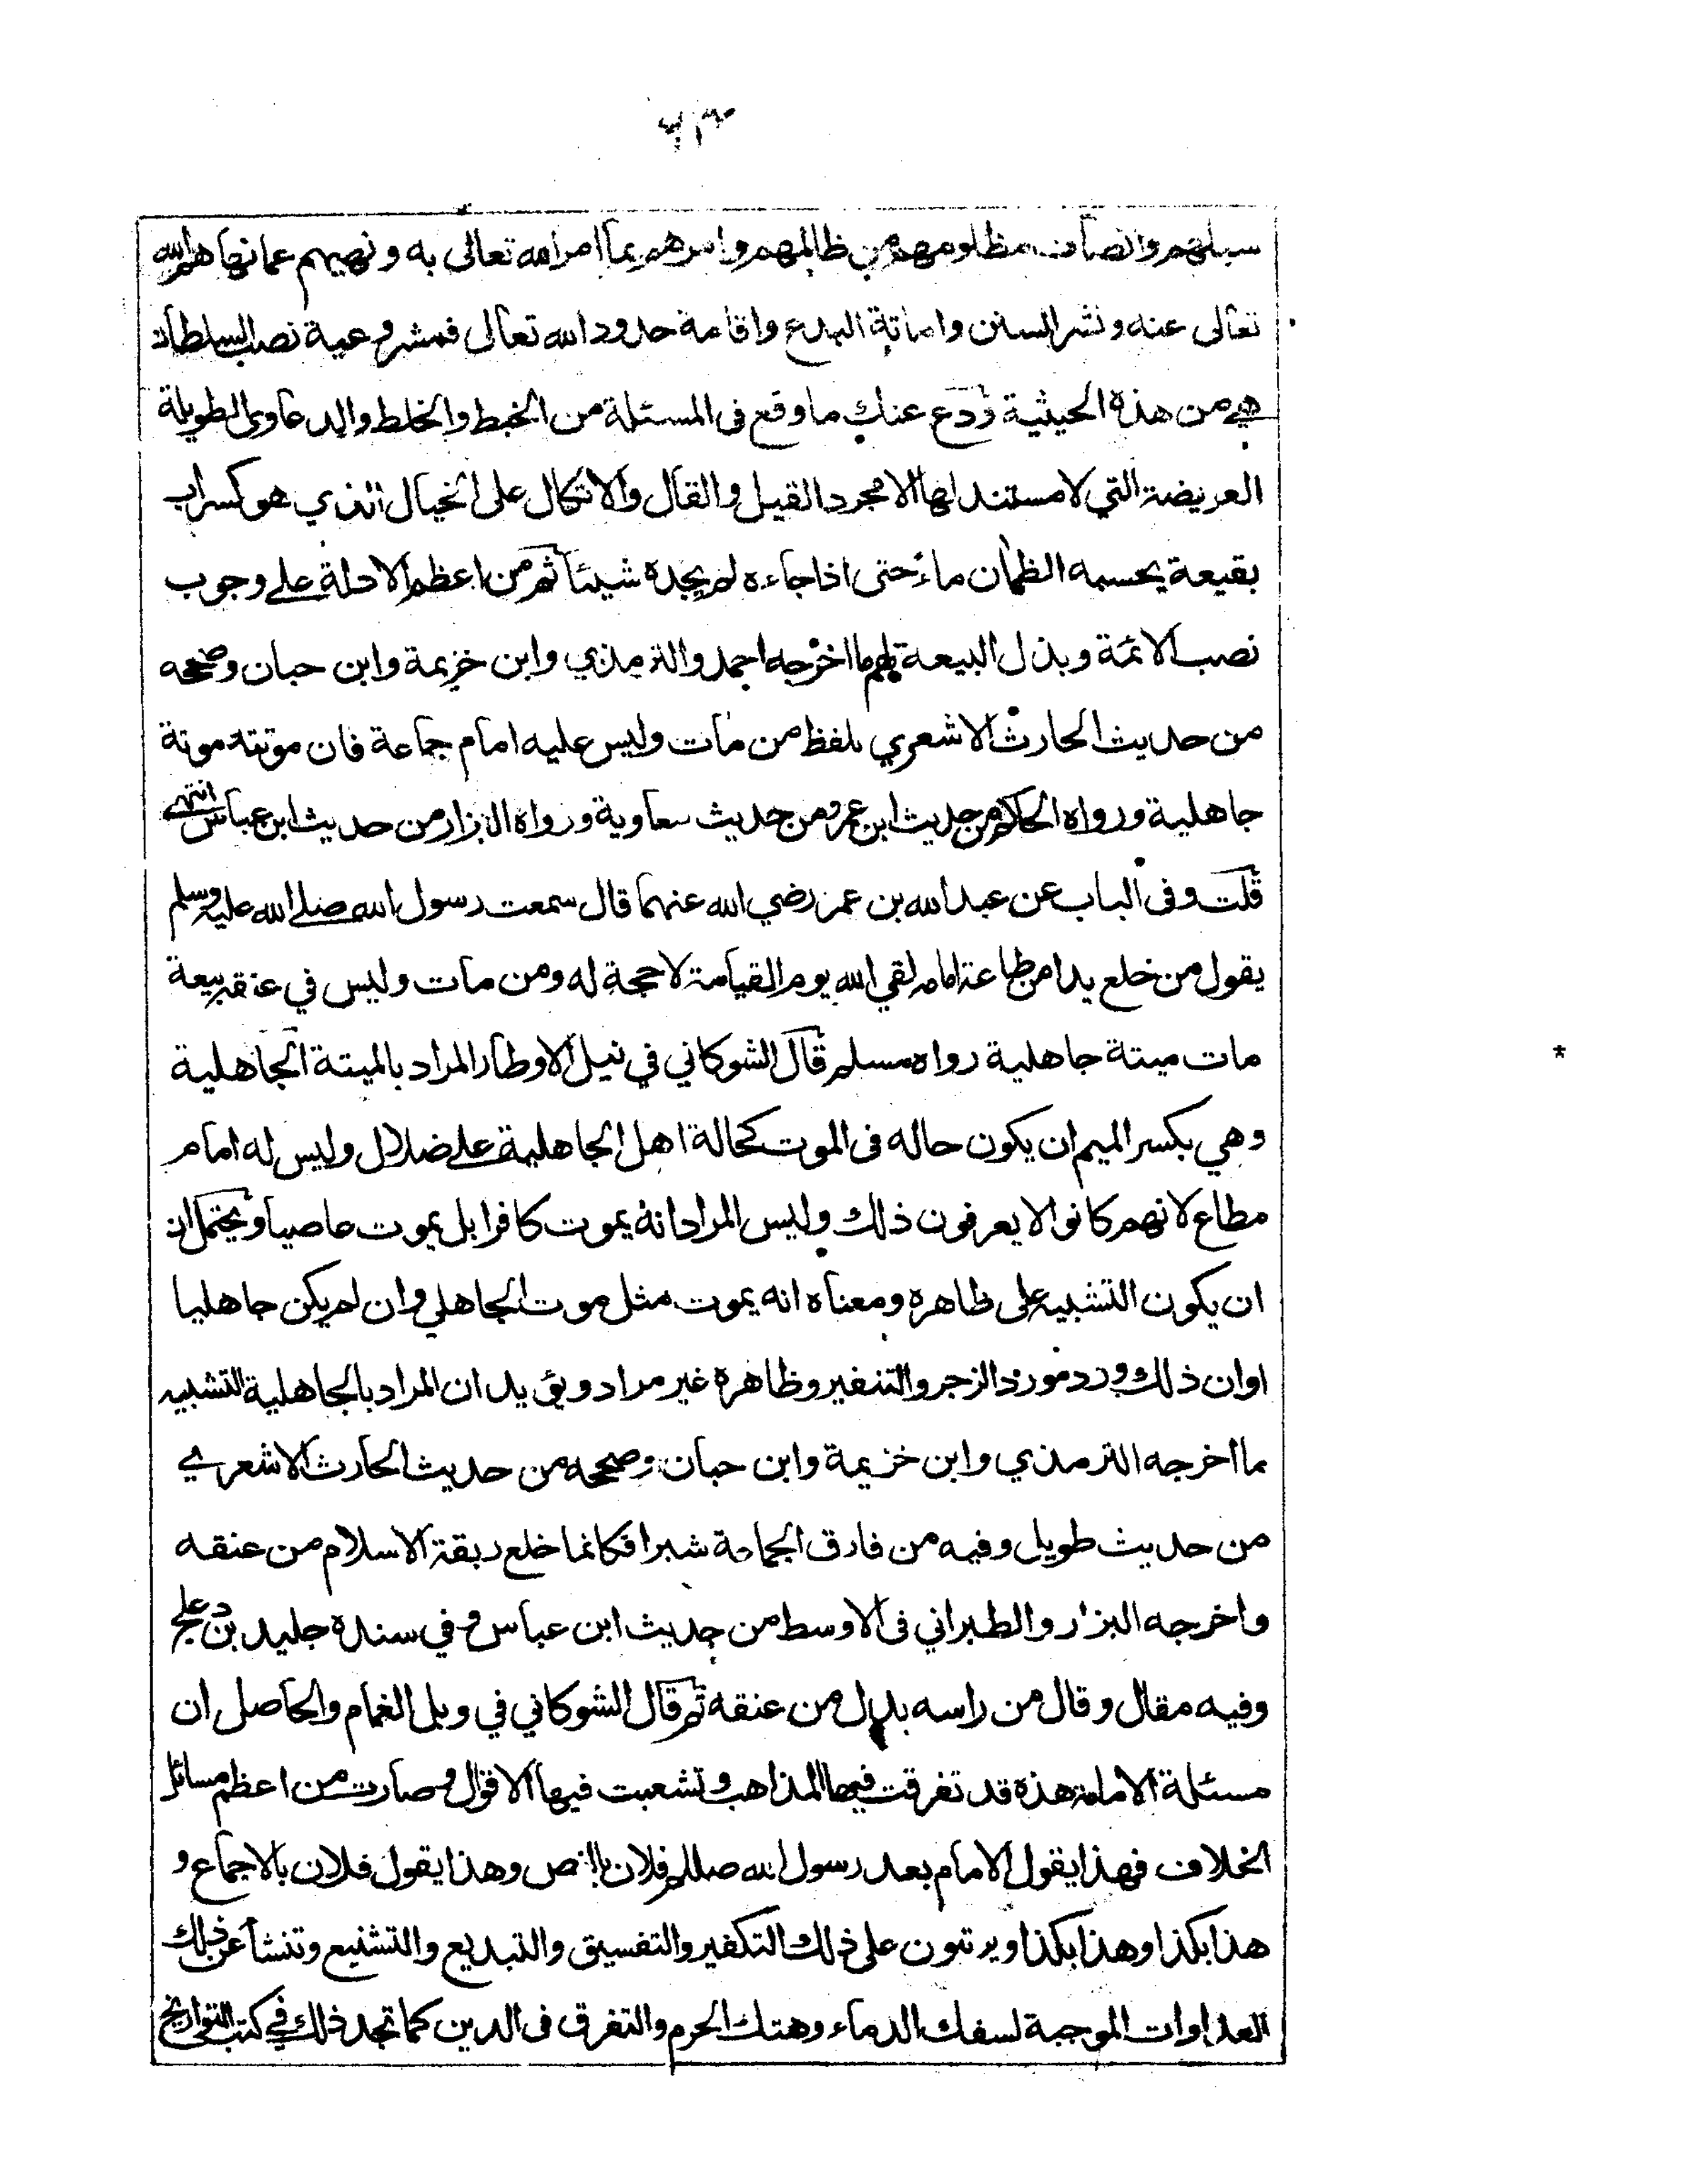 سبلهم وانصاف مظلومهم من ظالمهم وامرهم بما امر الله تعالى به ونهيهم عما نهاهم الله
تعالى عنه ونشر السنن واماتة البدع واقامة حدود الله تعالى فمشروعية نصب السلطان
هي من هذه الحيثية ودع عنك ما وقع فى المسئلة من الخبط والخلط والدعاوى الطويلة
العريضة التي لا مستند لها الا مجرد القيل والقال والاتكال على الخيال الذي هو كسراب
بقيعة يحسبه الظمان ماء حتى اذا جاءه لم يجده شيئا ثم من اعظم الادلة على وجوب
نصب الائمة وبذل البيعة لهم ما اخرجه احمد والترمذي وابن خزيمة وابن حبان وصححه
من حديث الحارث الاشعري بلفظ من مات وليس عليه امام جماعة فان موتته موتة
جاهلية ورواه الحاكم من حديث ابن عمر ومن حديث معاوية ورواه البزار من حديث ابن عباس انتهى
قلت وفى الباب عن عبد الله بن عمر رضي الله عنهما قال سمعت رسول الله صلى الله عليه وسلم
يقول من خلع يدا من طاعة امامه لقي الله يوم القيامة لا حجة له ومن مات وليس في عنقه بيعة
مات ميتة جاهلية رواه مسلم قال الشوكاني في نيل الاوطار المراد بالميتة الجاهلية
وهي بكسر الميم ان يكون حاله فى الموت كحالة اهل الجاهلية على ضلال وليس له امام
مطاع لانهم كانوا لا يعرفون ذلك وليس المراد انه يموت كافرا بل يموت عاصيا ويحتمل ان
ان يكون التشبيه على ظاهره ومعناه انه يموت مثل موت الجاهلي وان لم يكن جاهليا
او ان ذلك ورد مورد الزجر والتنفير وظاهره غير مراد ويؤيد ان المراد بالجاهلية التشبيه
ما اخرجه الترمذي وابن خزيمة وابن حبان وصححه من حديث الحارث الاشعري
من حديث طويل وفيه من فارق الجماعة شبرا فكانما خلع ربقة الاسلام من عنقه
واخرجه البزار والطبراني فى الاوسط من حديث ابن عباس وفي سنده جليد بن دعلج
وفيه مقال وقال من راسه بدل من عنقه ثم قال الشوكاني في وبل الغمام والحاصل ان
مسئلة الامامة هذه قد تفرقت فيها المذاهب وتشعبت فيها الاقوال وصارت من اعظم مسائل
الخلاف فهذا يقول الامام بعد رسول الله صللم فلان بالنص وهذا يقول فلان بالاجماع و
هذا بكذا وهذا بكذا ويرتبون على ذلك التكفير والتفسيق والتبديع والتشنيع وتنشأ عن ذلك
العداوات الموجبة لسفك الدماء وهتك الحرم والتفرق فى الدين كما تجد ذلك في كتب التواريخ